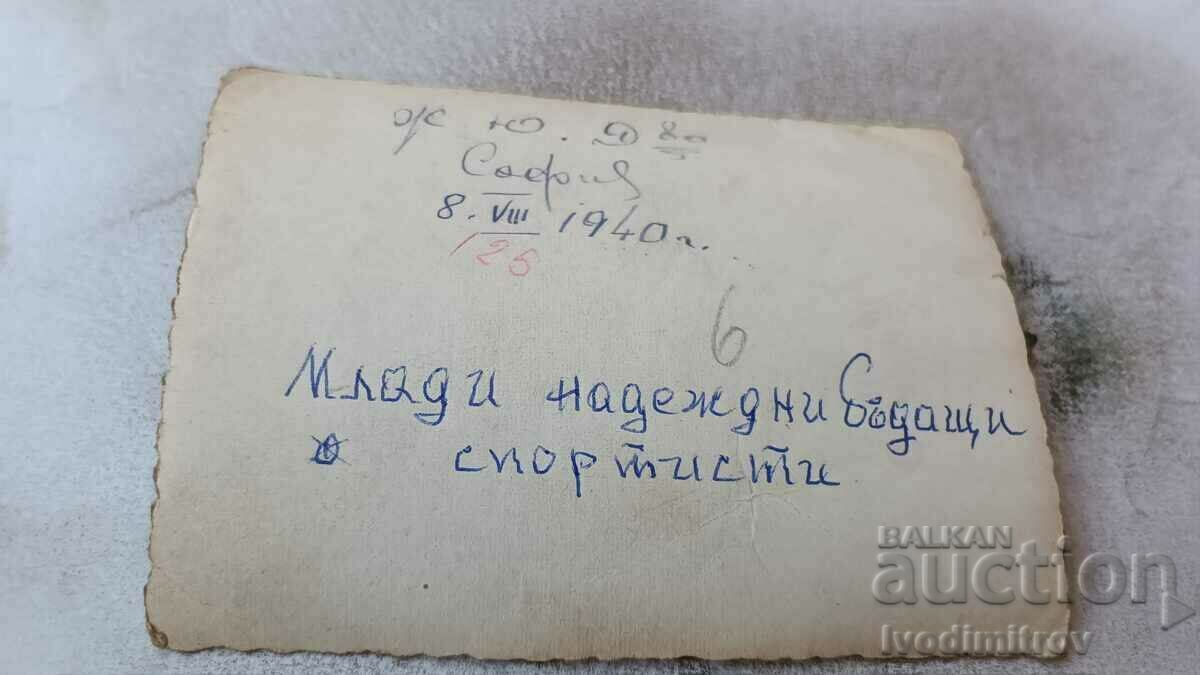 Ю.
София
8. VIII 1940 г.
125
6
Млади надеждни бъдащи
спортисти
BALKAN
auction
Ivodimitrov